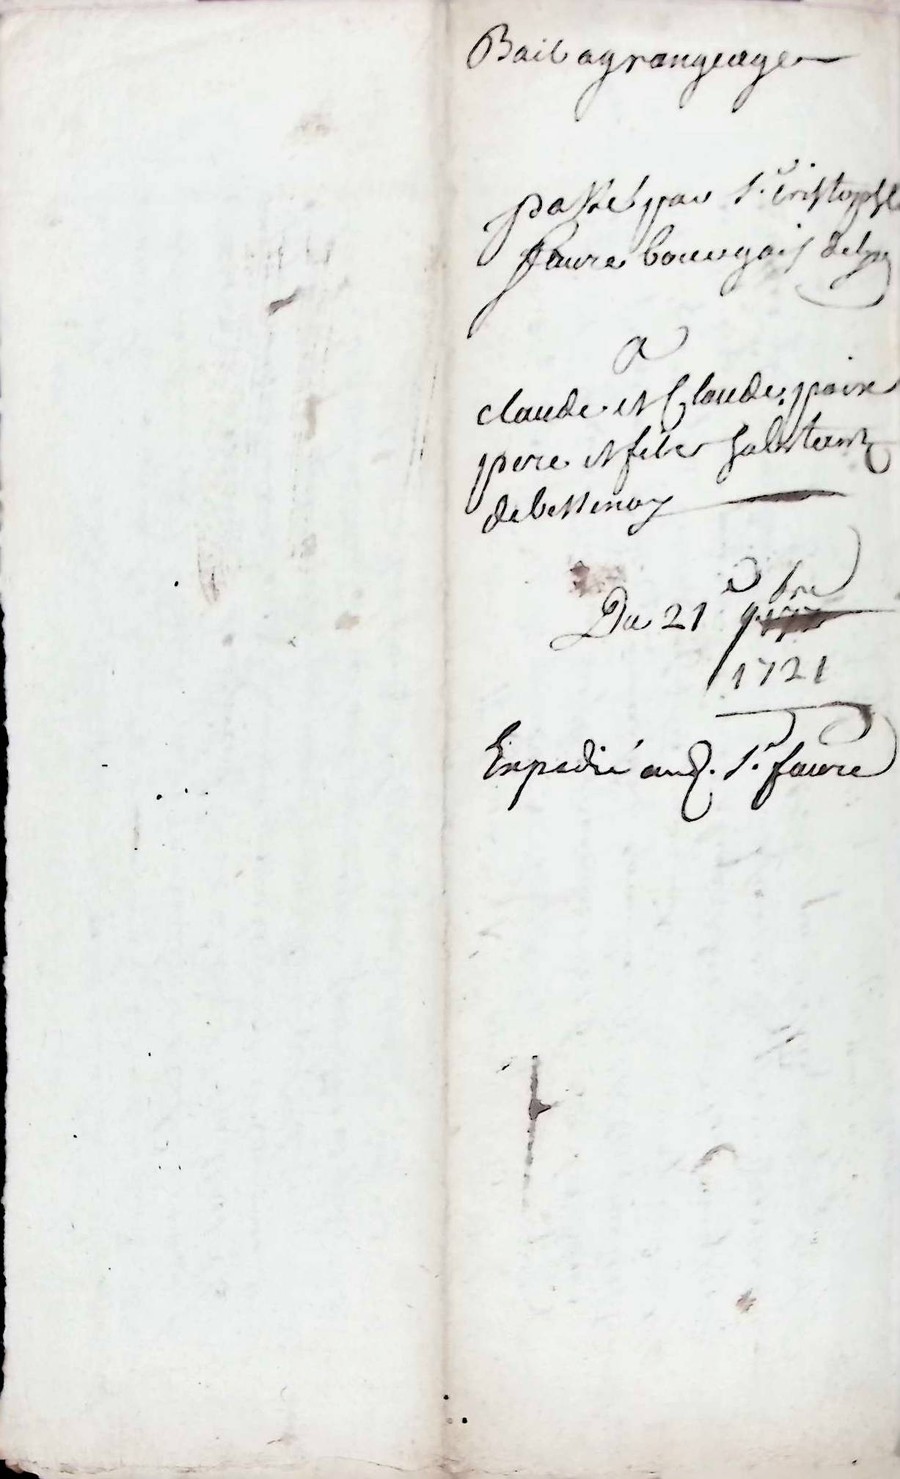 Bail agrangeage
passé par Sr. Cristophle
faure bourgois de
a
claude et Claude paire
pere et fils habitant
de bettenay
Du 21e 9bre
1721
Expedié aud. Sr. faure